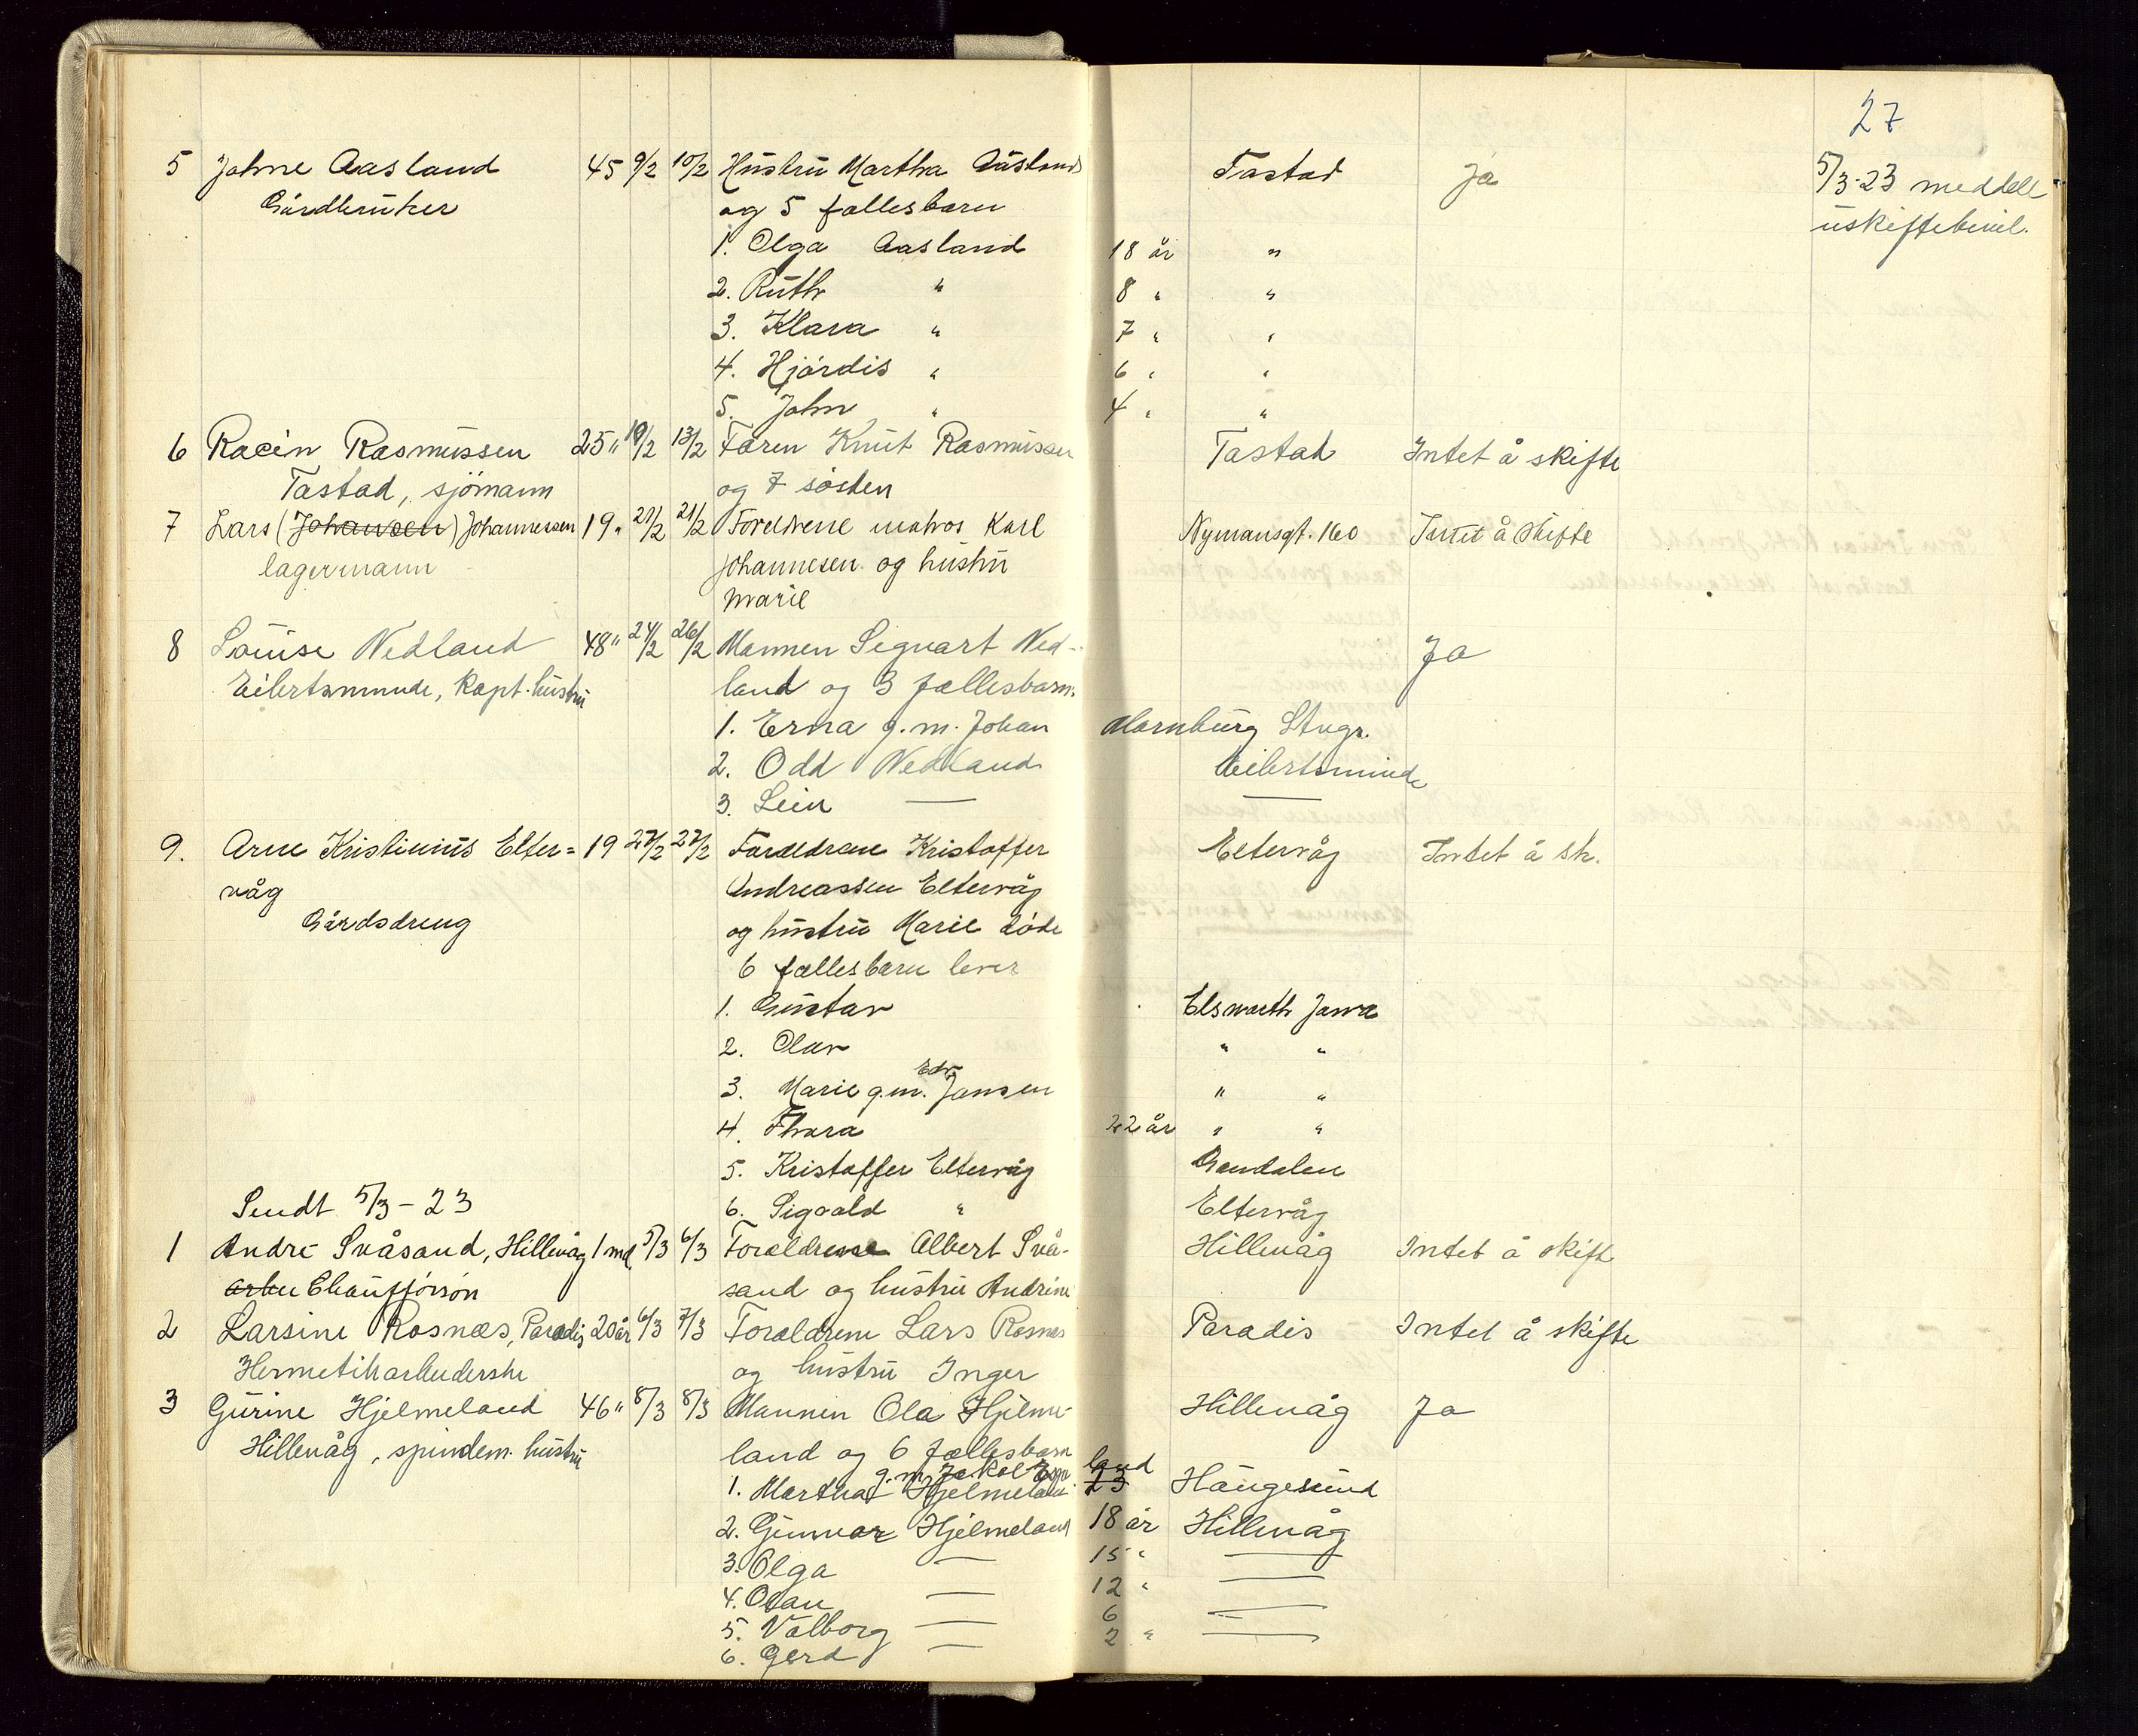 27
5 Johne Aasland 45 9/2 10/2 Hustru Martha Aasland Tastad Ja 5/3-23 meddelt
Gårdbruker og 5 fællesbarn uskiftebevil.
1. Olga Aasland 18 år "
2. Ruth " 8 " "
3. Klara " 7 " "
4. Hjördis " 6 " "
5. John " 4 " "
6 Rasmussen 25 " 10/2 13/2 Faren Knut Rasmussen Tastad Intet å skifte
Tastad, sjömann og 7 søsken
7 Lars (Johansen) Johannessen 19 " 21/2 21/2 Foreldrene matros Karl Nymansgt. 160 Intet å skifte
lagermann Johannesen og hustru
Marie
8 Louise Nedland 48 " 24/2 26/2 Mannen Sigvart Ned- Ja
Eilertsminde, Kapt. hustru land og 3 fællesbarn.
1. Erna g.m. Johan Marnburg Stvgr.
2. Odd Nedland Eilertsminde
3. Leiv — —
9. Arne Kristinius Elter= 19 27/2 27/2 Forældrene Kristoffer Eltervåg Intet å sk.
våg Andreassen Eltervåg
Gårdsdreng og hustru Marie döde
6 fællesbarn lever
1. Gustav Elsworth Jowa
2. Olav " "
3. Marie g.m. Edv. Jansen " "
4. Thora 22 år " "
5. Kristoffer Eltervåg Gandalen
Sendt 5/3-23 6. Sigvald " Eltervåg
1 Andre Svåsand, Hillevåg 1 md. 5/3 6/3 Forældrene Albert Svå- Hillevåg Intet å skifte
arbei Chaufförsön sand og hustru Andrine
2 Larsine Rosnæs, Paradis 20 år 6/3 7/3 Forældrene Lars Rosnæs Paradis Intet å skifte
Hermetikarbeiderske og hustru Inger
3 Gurine Hjelmeland 46 " 8/3 8/3 Mannen Ola Hjelme- Hillevåg Ja
Hillevåg, spindem. hustru land og 6 fællesbarn
g.m. Jakob land
1. Martha Hjelmeland 23 Haugesund
2. Gunnar Hjelmeland 18 år Hillevåg
3. Olga — 15 " —
4. — 12 " —
5. Valborg — 6 —
6. Gerd — 2 " —